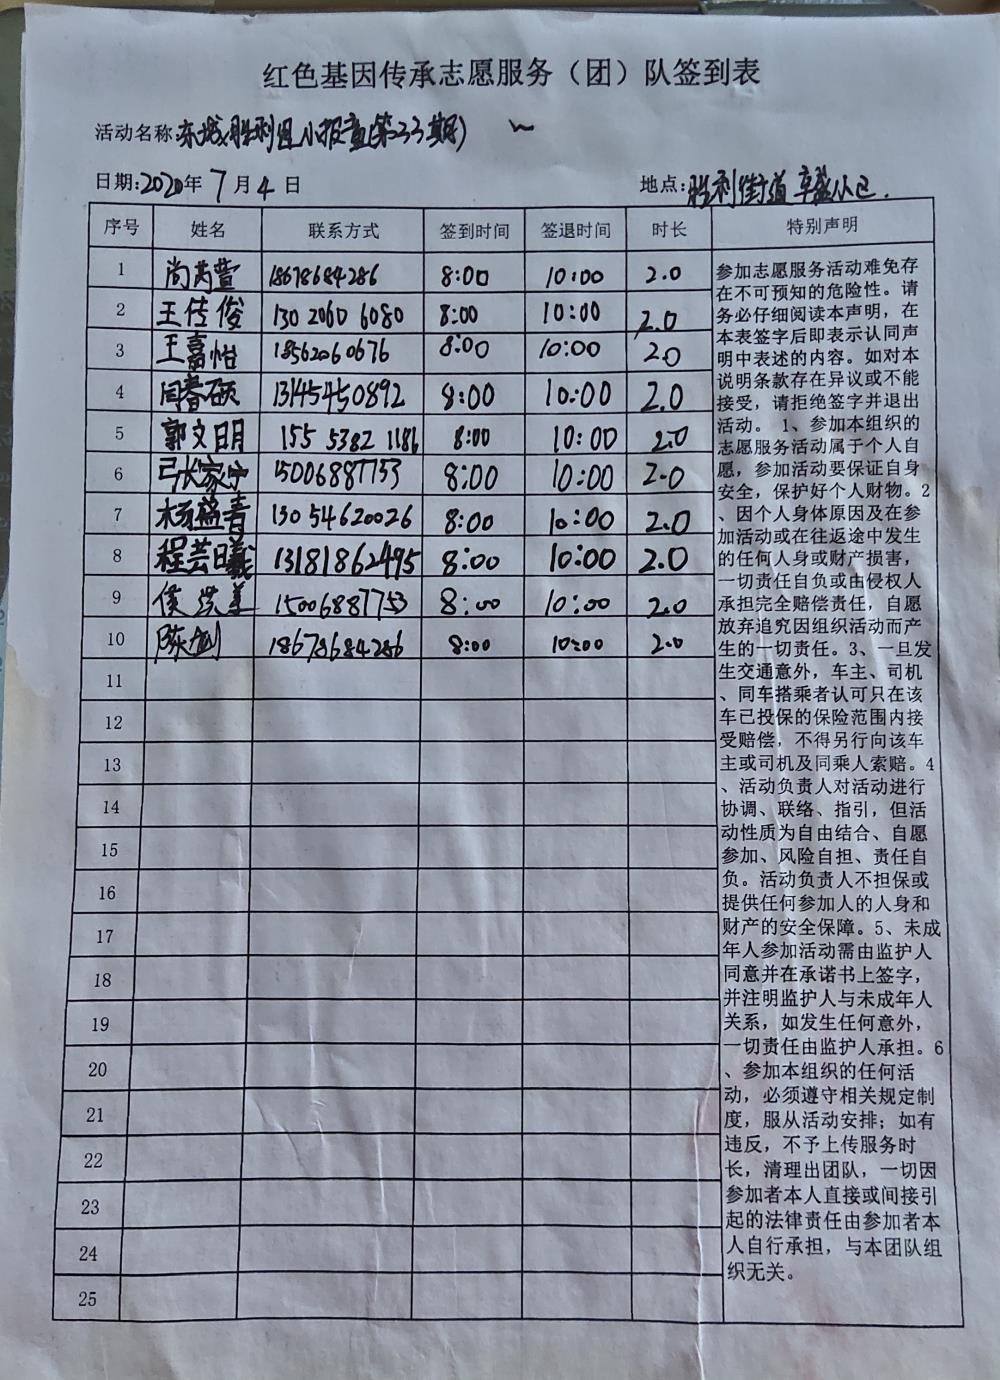 红色基因传承志愿服务（团）队签到表
活动名称 东城胜利组小报童(第23期)
日期:2020年 7 月 4 日 地点:胜利街道
序号 姓名 联系方式 签到时间 签退时间 时长 特别声明
1 尚芮萱 18678684286 8:00 10:00 2.0
2 王传俊 130 2060 6080 8:00 10:00 2.0
3 王嘉怡 18562060676 8:00 10:00 2.0
4 闫睿硕 13145450892 8:00 10:00 2.0
5 郭文明 155 5382 1186 8:00 10:00 2.0
6 张家宁 15006887753 8:00 10:00 2.0
7 杨益青 130 54620026 8:00 10:00 2.0
8 程芸曦 13181862495 8:00 10:00 2.0
9 侯 15006887753 8:00 10:00 2.0
10 陈剑 18678684286 8:00 10:00 2.0
11
12
13
14
15
16
17
18
19
20
21
22
23
24
25
参加志愿服务活动难免存
在不可预知的危险性。请
务必仔细阅读本声明，在
本表签字后即表示认同声
明中表述的内容。如对本
说明条款存在异议或不能
接受，请拒绝签字并退出
活动。 1、参加本组织的
志愿服务活动属于个人自
愿，参加活动要保证自身
安全，保护好个人财物。2
、因个人身体原因及在参
加活动或在往返途中发生
的任何人身或财产损害，
一切责任自负或由侵权人
承担完全赔偿责任，自愿
放弃追究因组织活动而产
生的一切责任。3、一旦发
生交通意外，车主、司机
、同车搭乘者认可只在该
车已投保的保险范围内接
受赔偿，不得另行向该车
主或司机及同乘人索赔。4
、活动负责人对活动进行
协调、联络、指引，但活
动性质为自由结合、自愿
参加、风险自担、责任自
负。活动负责人不担保或
提供任何参加人的人身和
财产的安全保障。5、未成
年人参加活动需由监护人
同意并在承诺书上签字，
并注明监护人与未成年人
关系，如发生任何意外，
一切责任由监护人承担。6
、参加本组织的任何活
动，必须遵守相关规定制
度，服从活动安排；如有
违反，不予上传服务时
长，清理出团队，一切因
参加者本人直接或间接引
起的法律责任由参加者本
人自行承担，与本团队组
织无关。